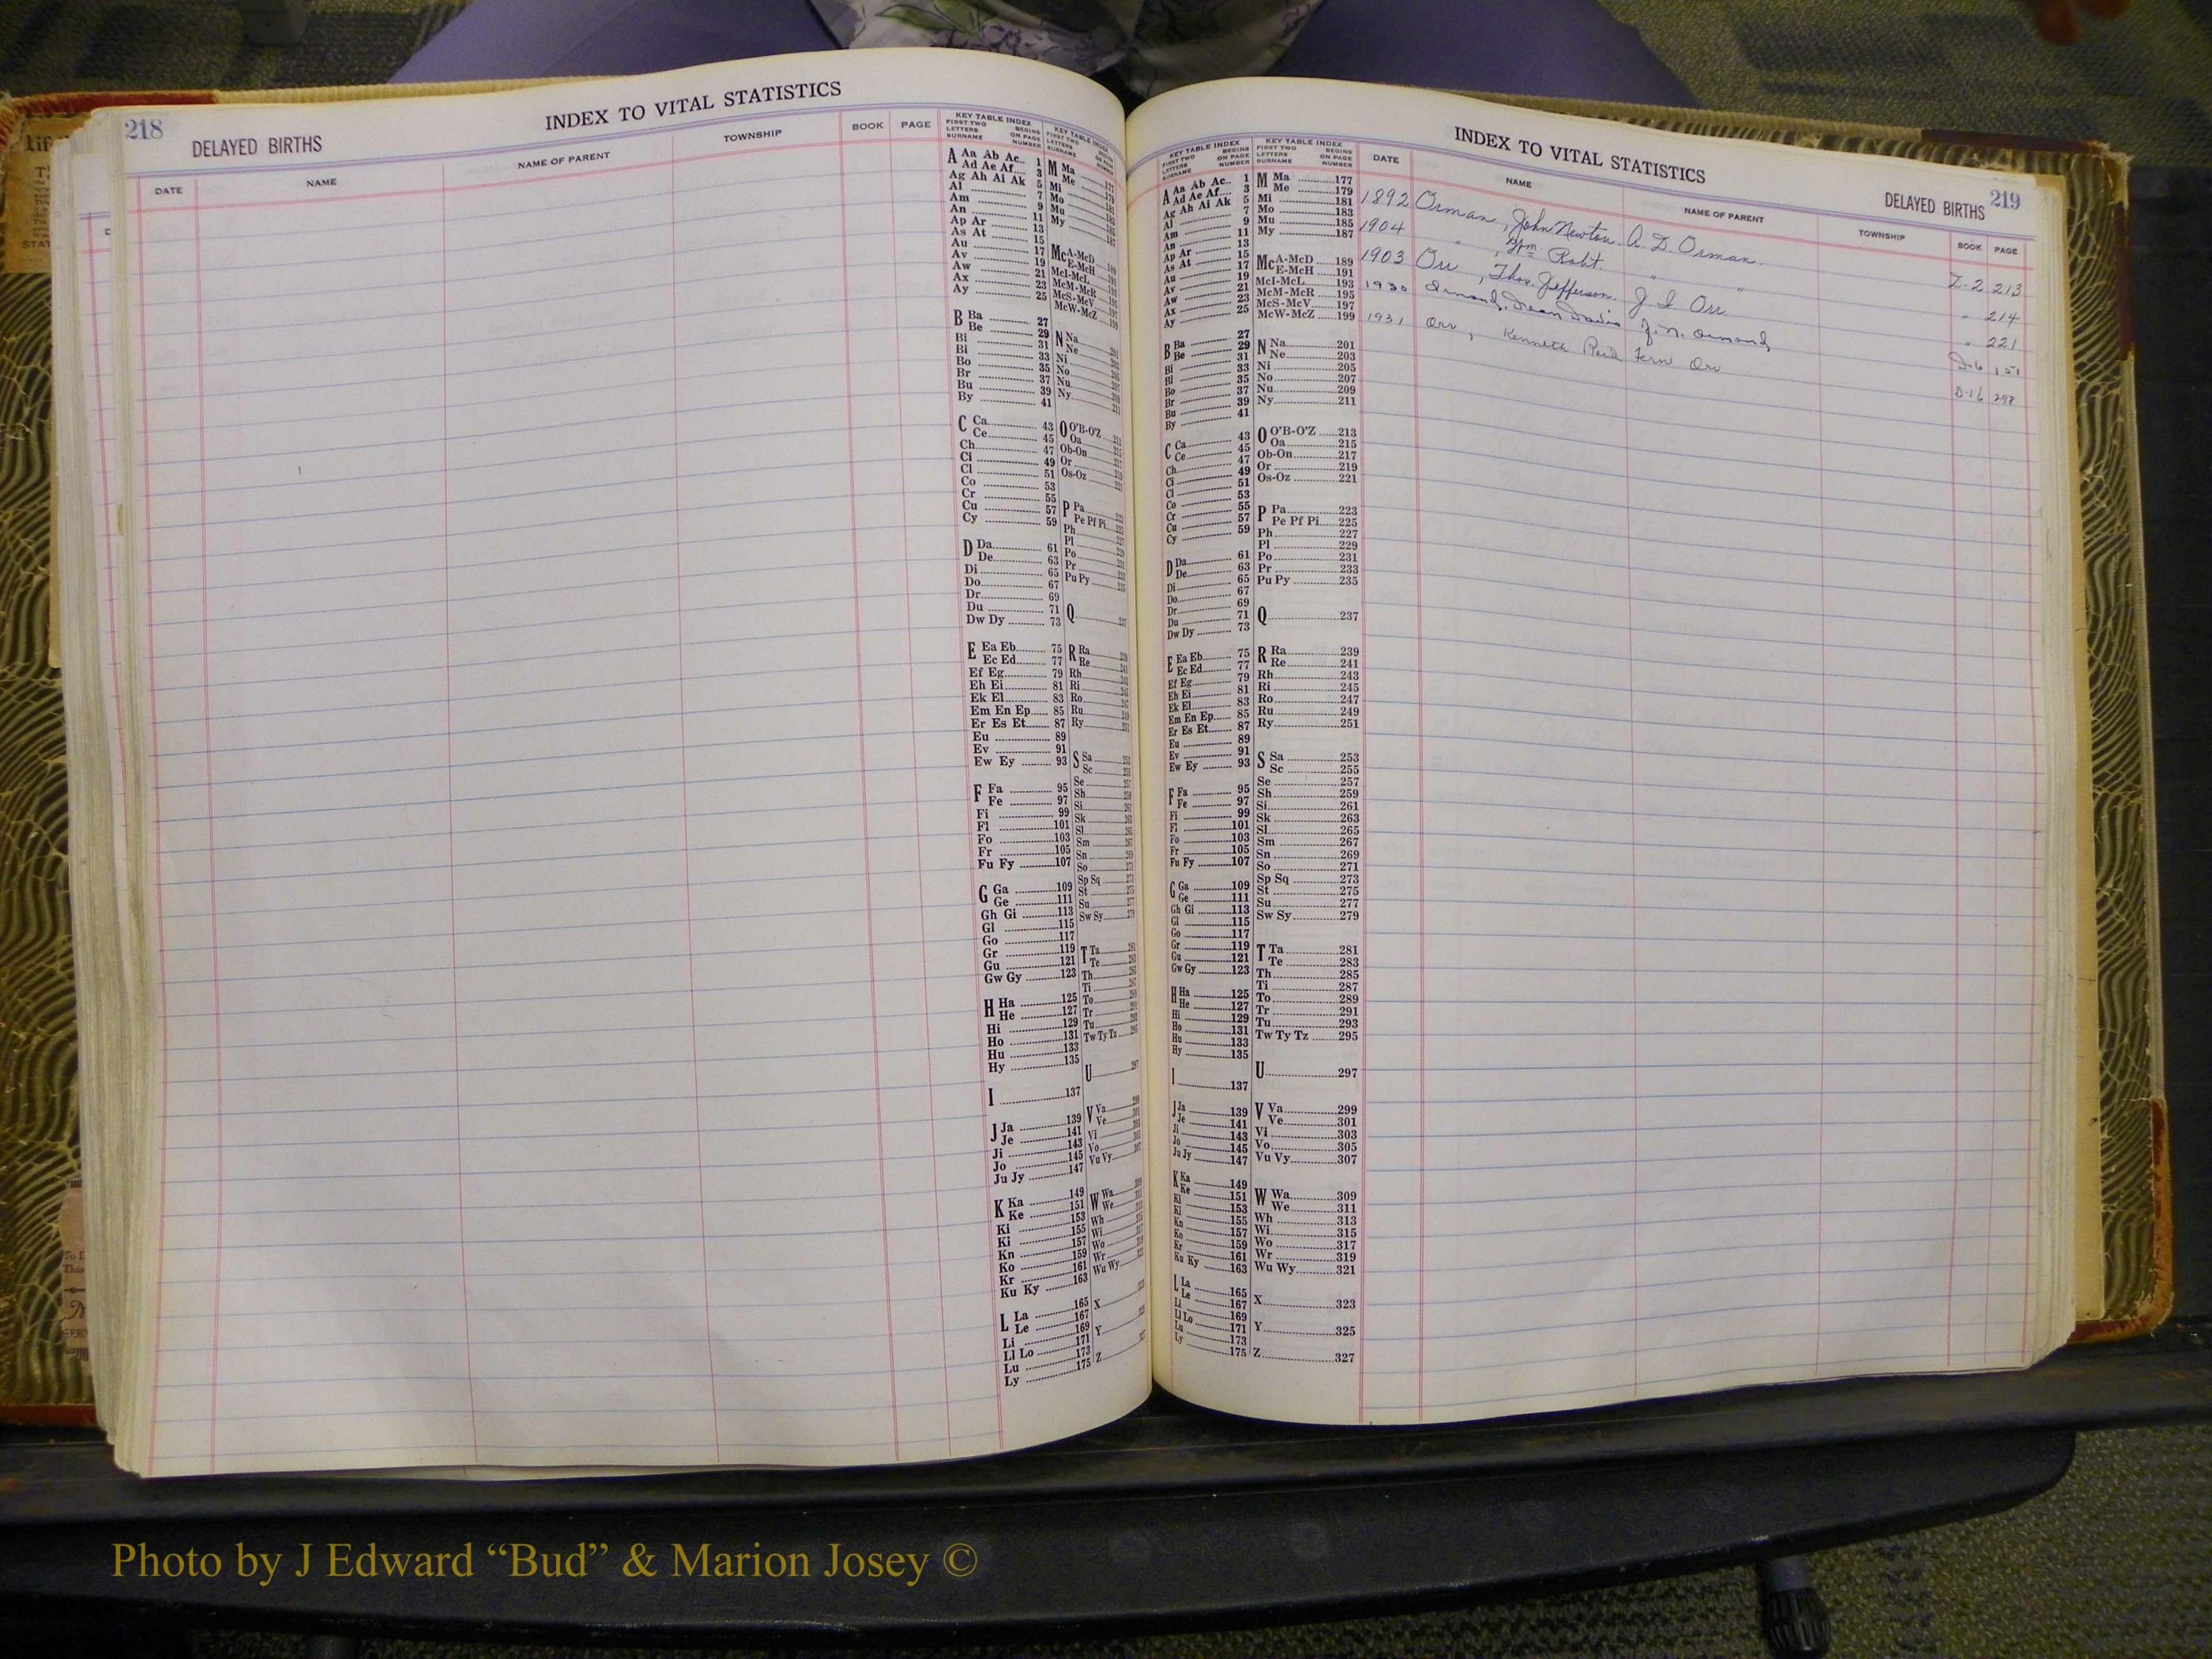 218
INDEX TO VITAL STATISTICS
DELAYED BIRTHS
DATE NAME NAME OF PARENT TOWNSHIP BOOK PAGE
KEY TABLE INDEX
FIRST TWO LETTERS SURNAME BEGINS ON PAGE NUMBER
A Aa Ab Ac 1
Ad Ae Af 3
Ag Ah Ai Ak 5
Al 7
Am 9
An 11
Ap Ar 13
As At 15
Au 17
Av 19
Aw 21
Ax 23
Ay 25
B Ba 27
Be 29
Bi 31
Bl 33
Bo 35
Br 37
Bu 39
By 41
C Ca 43
Ce 45
Ch 47
Ci 49
Cl 51
Co 53
Cr 55
Cu 57
Cy 59
D Da 61
De 63
Di 65
Do 67
Dr 69
Du 71
Dw Dy 73
E Ea Eb 75
Ec Ed 77
Ef Eg 79
Eh Ei 81
Ek El 83
Em En Ep 85
Er Es Et 87
Eu 89
Ev 91
Ew Ey 93
F Fa 95
Fe 97
Fi 99
Fl 101
Fo 103
Fr 105
Fu Fy 107
G Ga 109
Ge 111
Gh Gi 113
Gl 115
Go 117
Gr 119
Gu 121
Gw Gy 123
H Ha 125
He 127
Hi 129
Ho 131
Hu 133
Hy 135
I 137
J Ja 139
Je 141
Ji 143
Jo 145
Ju Jy 147
K Ka 149
Ke 151
Ki 153
Ki 155
Kn 157
Ko 159
Kr 161
Ku Ky 163
L La 165
Le 167
Li 169
Ll Lo 171
Lu 173
Ly 175
219
INDEX TO VITAL STATISTICS
DELAYED BIRTHS
KEY TABLE INDEX
FIRST TWO LETTERS SURNAME BEGINS ON PAGE NUMBER
M Ma 177
Me 179
Mi 181
Mo 183
Mu 185
My 187
Mc A-McD 189
E-McH 191
McI-McL 193
McM-McR 195
McS-McV 197
McW-McZ 199
N Na 201
Ne 203
Ni 205
No 207
Nu 209
Ny 211
O O'B-O'Z 213
Oa 215
Ob-On 217
Or 219
Os-Oz 221
P Pa 223
Pe Pf Pi 225
Ph 227
Pl 229
Po 231
Pr 233
Pu Py 235
Q 237
R Ra 239
Re 241
Rh 243
Ri 245
Ro 247
Ru 249
Ry 251
S Sa 253
Sc 255
Se 257
Sh 259
Si 261
Sk 263
Sl 265
Sm 267
Sn 269
So 271
Sp Sq 273
St 275
Su 277
Sw Sy 279
T Ta 281
Te 283
Th 285
Ti 287
To 289
Tr 291
Tu 293
Tw Ty Tz 295
U 297
V Va 299
Ve 301
Vi 303
Vo 305
Vu Vy 307
W Wa 309
We 311
Wh 313
Wi 315
Wo 317
Wr 319
Wu Wy 321
X 323
Y 325
Z 327
DATE NAME NAME OF PARENT TOWNSHIP BOOK PAGE
1892 Orman, John Newton A. D. Orman Z-2 213
1904 " , Wm. Robt. " " " 214
1903 Orr, Thos. Jefferson J. I. Orr " 221
1930 Ormand, Dean Davis J. N. Ormand D-6 151
1931 Orr, Kenneth Reid Fern Orr D-16 298
Photo by J Edward “Bud” & Marion Josey ©